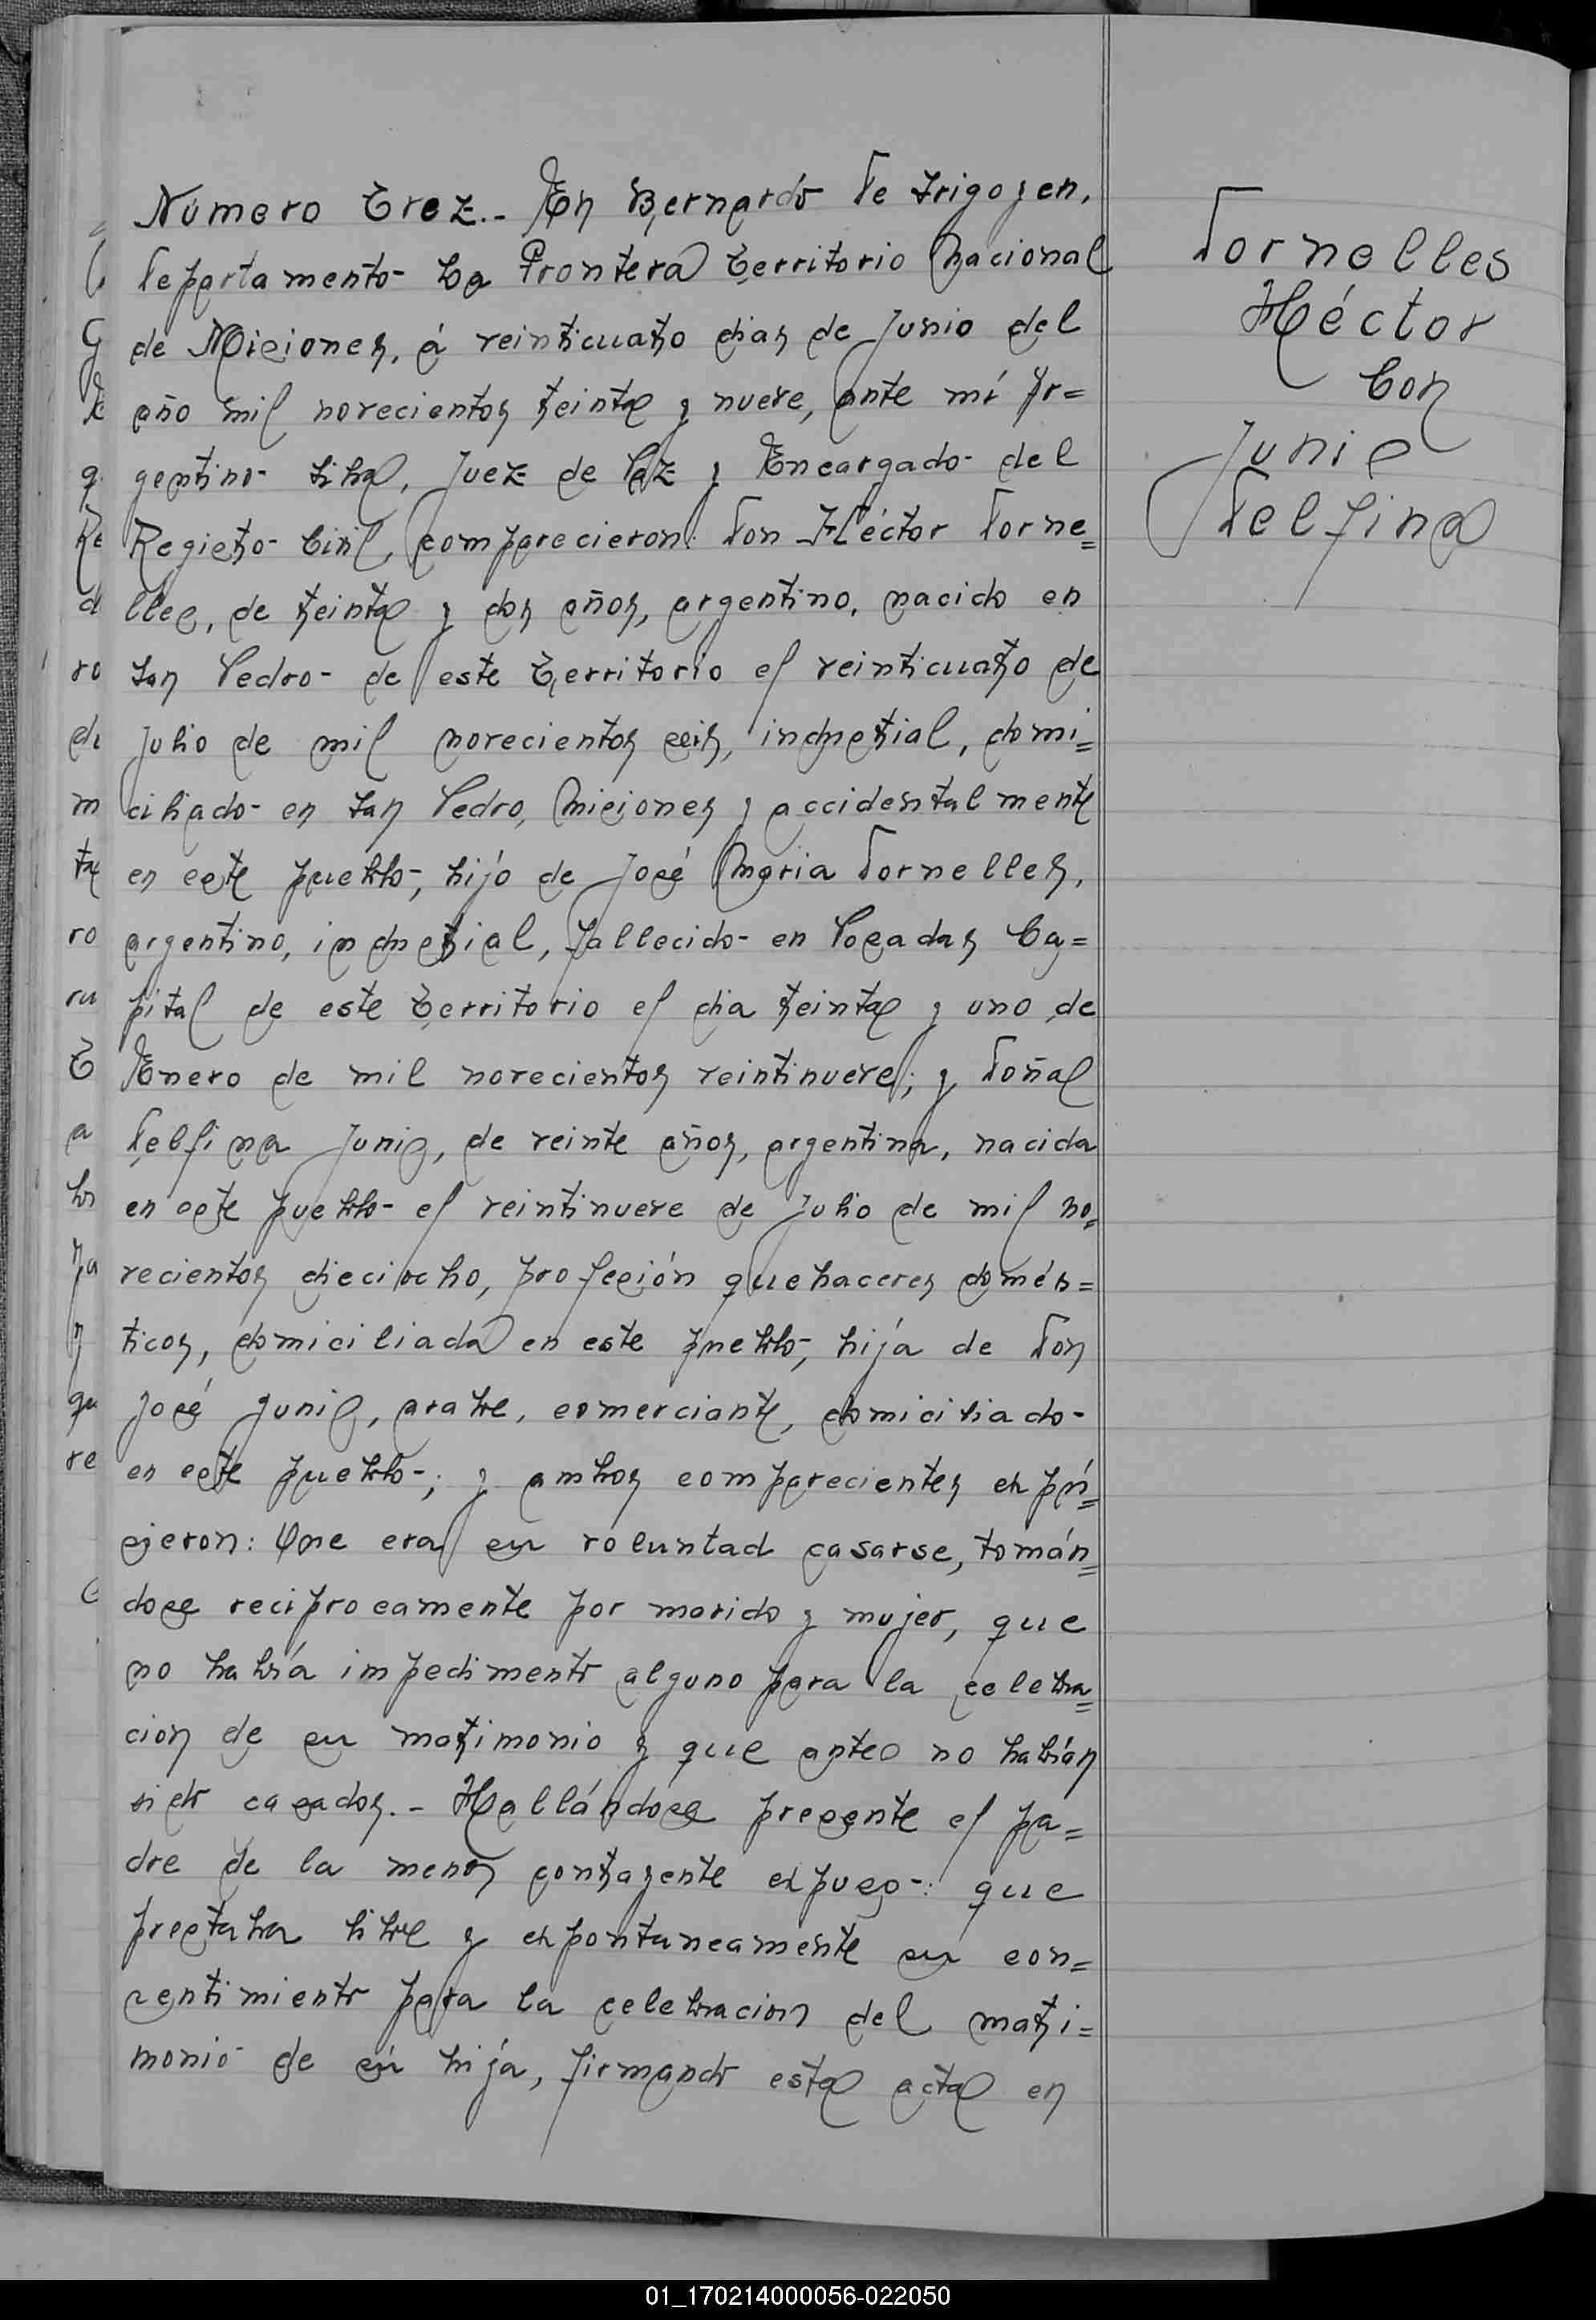 Número Trez.- En Bernardo de Irigoyen,
Departamento La Frontera Territorio Nacional
de Misiones, á veinticuatro dias de Junio del
año mil novecientos treinta y nueve, ante mí Ar=
gentino Silva, Juez de Paz y Encargado del
Registro Civil, comparecieron: Don Héctor Dorne=
lles, de treinta y dos años, argentino, nacido en
San Pedro de este Territorio el veinticuatro de
Julio de mil novecientos seis, industrial, domi=
ciliado en San Pedro, Misiones y accidentalmente
en este pueblo, hijo de José Maria Dornelles,
argentino, industrial, fallecido en Posadas Ca=
pital de este Territorio el dia treinta y uno de
Enero de mil novecientos veintinueve; y Doña
Delfina Junis, de veinte años, argentina, nacida
en este pueblo el veintinueve de Julio de mil no=
vecientos dieciocho, profesión quehaceres domés=
ticos, domiciliada en este pueblo, hija de Don
José Junis, arabe, comerciante, domiciliado
en este pueblo; y ambos comparecientes expu=
sieron: Que era su voluntad casarse, tomán=
dose reciprocamente por marido y mujer, que
no había impedimento alguno para la celebra=
cion de su matrimonio y que antes no habían
sido casados.- Hallándose presente el pa=
dre de la menor contrayente expuso: que
prestaba libre y expontaneamente su con=
sentimiento para la celebracion del matri=
monio de su hija, firmando esta acta en
Dornelles
Héctor
Con
Junis
Delfina
01_170214000056-022050